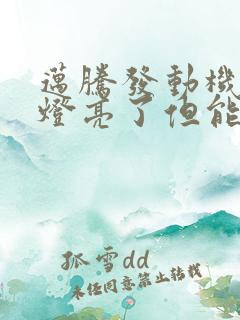 邁騰發動機
燈亮了但能
孤雪dd
未经同意禁止转载